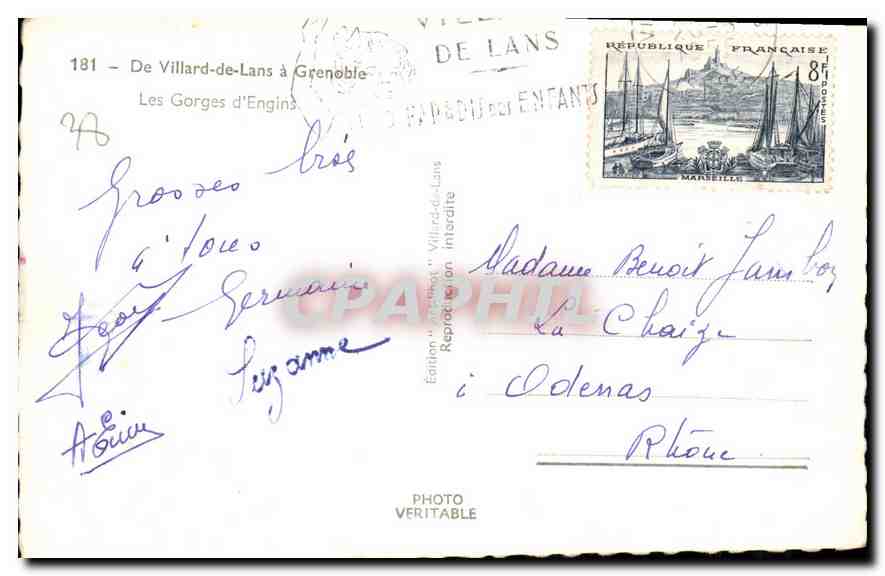 181 – De Villard-de-Lans à Grenoble
Les Gorges d'Engins
VILLARD
DE LANS
PARADIS des ENFANTS
RÉPUBLIQUE FRANÇAISE
8F
POSTES
MARSEILLE
Grosses bises
à tous
Germaine
Suzanne
Edition " " Villard-de-Lans
Reproduction interdite
CPAPHIL
Madame Benoit
La Chaize
à Odenas
Rhône
PHOTO
VERITABLE